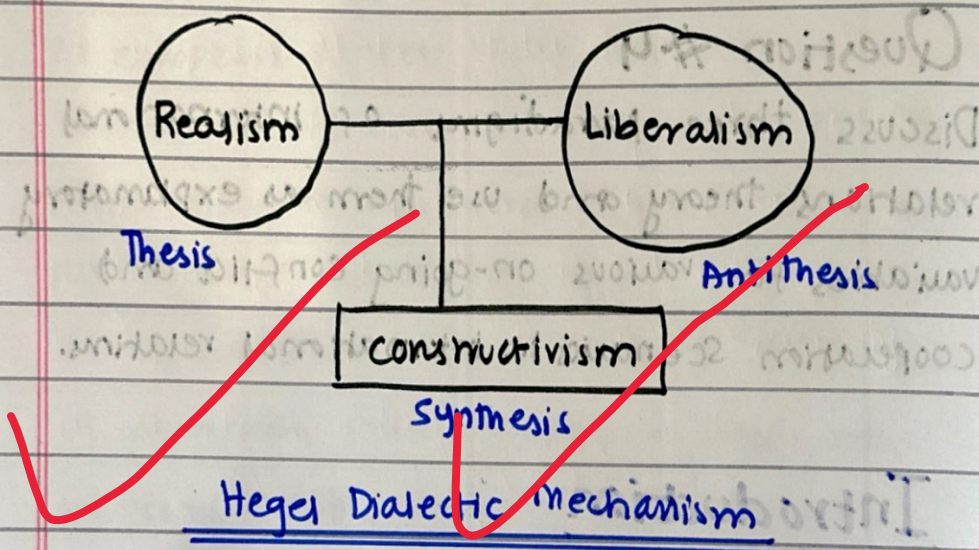 Realism Liberalism
Thesis Antithesis
Constructivism
Synthesis
Hegel Dialectic Mechanism